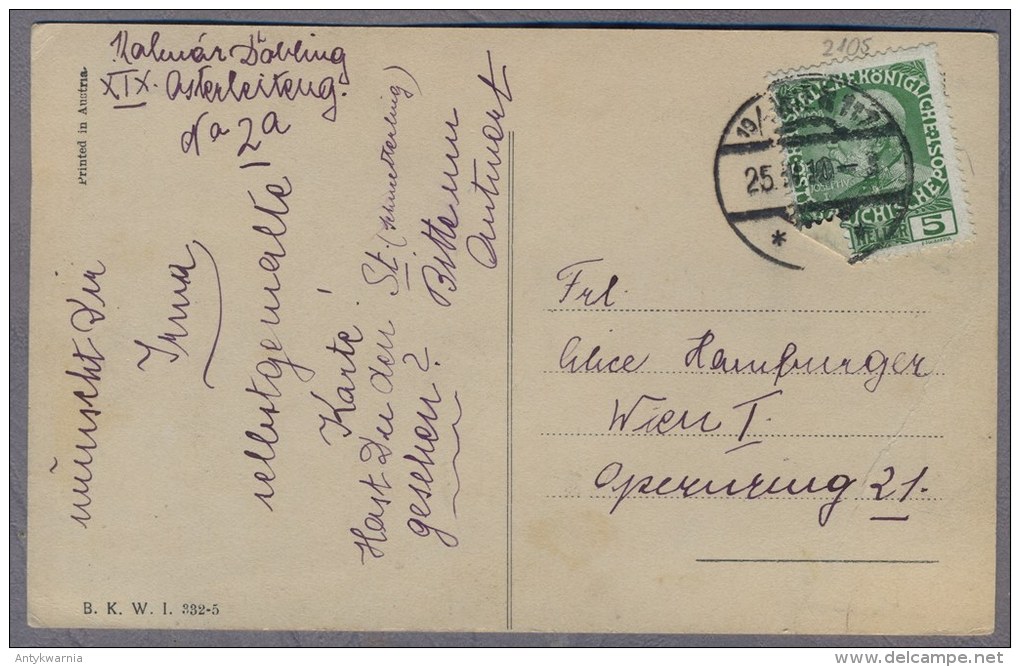 Kalmár Döbling
XIX. Osterleiteng.
No 2a
wünscht Dir
Irma
selbstgemalte!
Karte!
Hast Du den St. (Schmetterling)
gesehen?
Bitte um
Antwort
Printed in Austria
B. K. W. I. 332-5
2105
25.
10
5
HELLER
Frl.
Alice Hamburger
Wien I.
Opernring 21.
Antykwarnia
http://www.delcampe.net